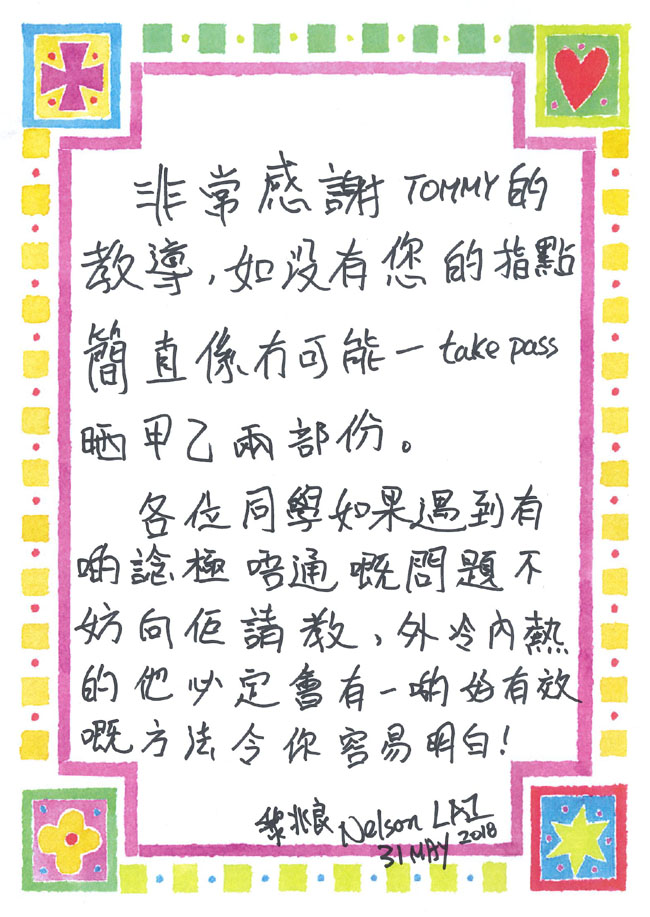 非常感謝 TOMMY 的
教導，如沒有您的指點
簡直係冇可能一 take pass
晒甲乙兩部份。
各位同學如果遇到有
啲諗極唔通嘅問題不
妨向佢請教，外冷內熱
的他必定會有一啲好有效
嘅方法令你容易明白！
黎兆良 Nelson LAI
31 MAY 2018